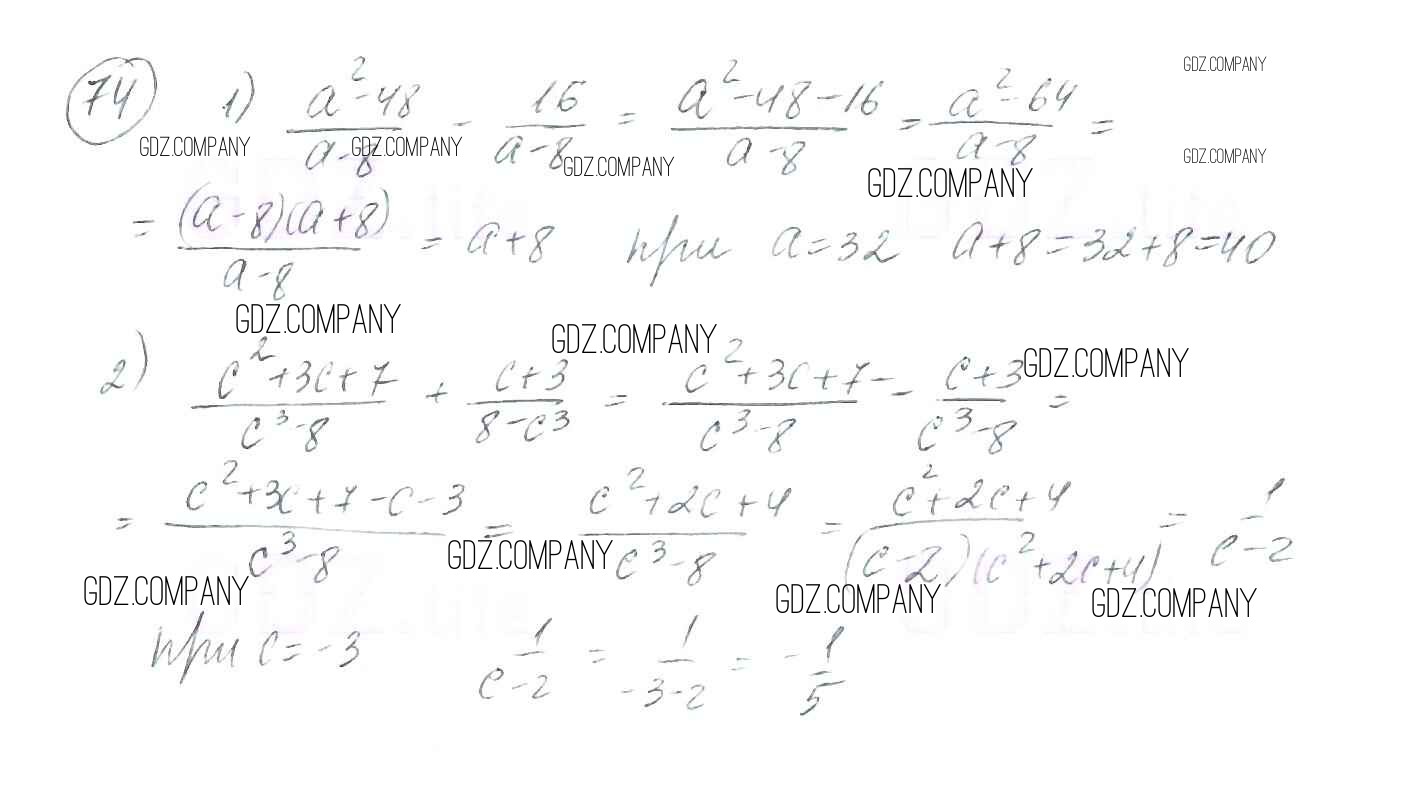 74 1) (a²-48)/(a-8) - 16/(a-8) = (a²-48-16)/(a-8) = (a²-64)/(a-8) =
= (a-8)(a+8)/(a-8) = a+8 при a=32 a+8=32+8=40
2) (c²+3c+7)/(c³-8) + (c+3)/(8-c³) = (c²+3c+7)/(c³-8) - (c+3)/(c³-8) =
= (c²+3c+7-c-3)/(c³-8) = (c²+2c+4)/(c³-8) = (c²+2c+4)/((c-2)(c²+2c+4)) = 1/(c-2)
при c=-3 1/(c-2) = 1/(-3-2) = -1/5
GDZ.COMPANY
GDZ.COMPANY
GDZ.COMPANY
GDZ.COMPANY
GDZ.COMPANY
GDZ.COMPANY
GDZ.COMPANY
GDZ.COMPANY
GDZ.COMPANY
GDZ.COMPANY
GDZ.COMPANY
GDZ.COMPANY
GDZ.COMPANY